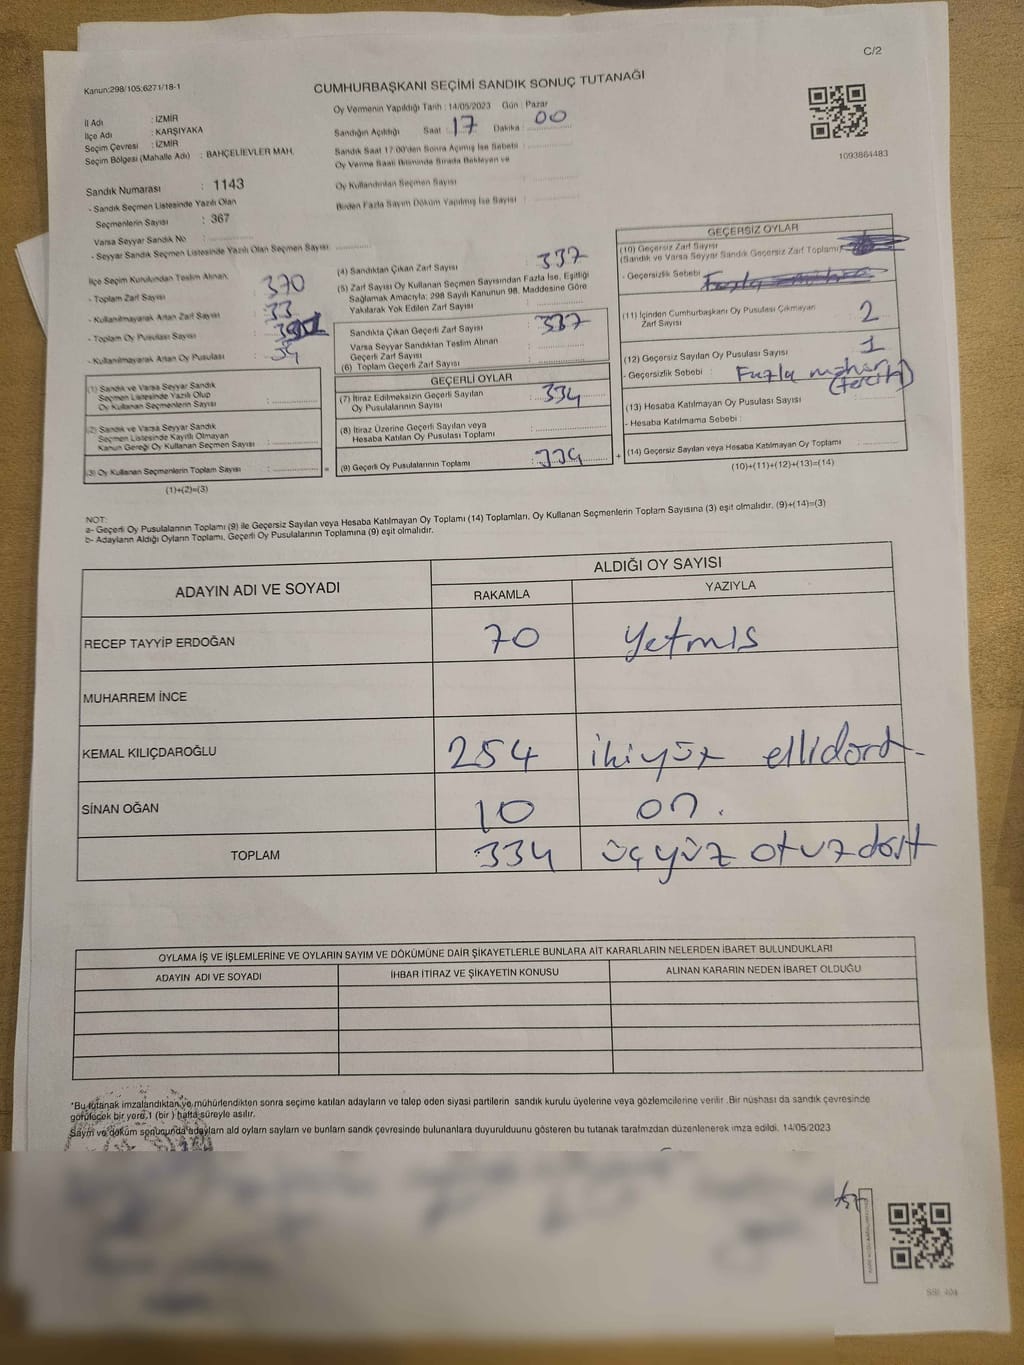 C/2
Kanun:298/105;6271/18-1
CUMHURBAŞKANI SEÇİMİ SANDIK SONUÇ TUTANAĞI
İl Adı : İZMİR
İlçe Adı : KARŞIYAKA
Seçim Çevresi : İZMİR
Seçim Bölgesi (Mahalle Adı) : BAHÇELİEVLER MAH.
Oy Vermenin Yapıldığı Tarih : 14/05/2023 Gün : Pazar
Sandığın Açıldığı Saat : 17 Dakika : 00
Sandık Saat 17:00'den Sonra Açımış İse Sebebi :
Oy Verme Saati Bitiminde Sırada Bekleyen ve
Oy Kullandırılan Seçmen Sayısı :
Birden Fazla Sayım Döküm Yapılmış İse Sayısı :
1093864483
Sandık Numarası : 1143
- Sandık Seçmen Listesinde Yazılı Olan
Seçmenlerin Sayısı : 367
Varsa Seyyar Sandık No :
- Seyyar Sandık Seçmen Listesinde Yazılı Olan Seçmen Sayısı :
İlçe Seçim Kurulundan Teslim Alınan;
- Toplam Zarf Sayısı : 370
- Kullanılmayarak Artan Zarf Sayısı : 33
- Toplam Oy Pusulası Sayısı :
- Kullanılmayarak Artan Oy Pusulası : 34
(1) Sandık ve Varsa Seyyar Sandık
Seçmen Listesinde Yazılı Olup
Oy Kullanan Seçmenlerin Sayısı :
(2) Sandık ve Varsa Seyyar Sandık
Seçmen Listesinde Kayıtlı Olmayan
Kanun Gereği Oy Kullanan Seçmen Sayısı :
(3) Oy Kullanan Seçmenlerin Toplam Sayısı : =
(1)+(2)=(3)
(4) Sandıktan Çıkan Zarf Sayısı : 337
(5) Zarf Sayısı Oy Kullanan Seçmen Sayısından Fazla İse, Eşitliği
Sağlamak Amacıyla; 298 Sayılı Kanunun 98. Maddesine Göre
Yakılarak Yok Edilen Zarf Sayısı :
Sandıkta Çıkan Geçerli Zarf Sayısı : 337
Varsa Seyyar Sandıktan Teslim Alınan
Geçerli Zarf Sayısı :
(6) Toplam Geçerli Zarf Sayısı :
GEÇERLİ OYLAR
(7) İtiraz Edilmeksizin Geçerli Sayılan
Oy Pusulalarının Sayısı : 334
(8) İtiraz Üzerine Geçerli Sayılan veya
Hesaba Katılan Oy Pusulası Toplamı :
(9) Geçerli Oy Pusulalarının Toplamı : 334 +
GEÇERSİZ OYLAR
(10) Geçersiz Zarf Sayısı
(Sandık ve Varsa Seyyar Sandık Geçersiz Zarf Toplamı) :
- Geçersizlik Sebebi : Fazla
(11) İçinden Cumhurbaşkanı Oy Pusulası Çıkmayan
Zarf Sayısı : 2
(12) Geçersiz Sayılan Oy Pusulası Sayısı : 1
- Geçersizlik Sebebi : Fazla mühür
(tercih)
(13) Hesaba Katılmayan Oy Pusulası Sayısı :
- Hesaba Katılmama Sebebi :
(14) Geçersiz Sayılan veya Hesaba Katılmayan Oy Toplamı :
(10)+(11)+(12)+(13)=(14)
NOT:
a- Geçerli Oy Pusulalarının Toplamı (9) ile Geçersiz Sayılan veya Hesaba Katılmayan Oy Toplamı (14) Toplamları, Oy Kullanan Seçmenlerin Toplam Sayısına (3) eşit olmalıdır. (9)+(14)=(3)
b- Adayların Aldığı Oyların Toplamı, Geçerli Oy Pusulalarının Toplamına (9) eşit olmalıdır.
ADAYIN ADI VE SOYADI
ALDIĞI OY SAYISI
RAKAMLA YAZIYLA
RECEP TAYYİP ERDOĞAN 70 yetmis
MUHARREM İNCE
KEMAL KILIÇDAROĞLU 254 ikiyüz ellidört
SİNAN OĞAN 10 on.
TOPLAM 334 üçyüz otuzdört
OYLAMA İŞ VE İŞLEMLERİNE VE OYLARIN SAYIM VE DÖKÜMÜNE DAİR ŞİKAYETLERLE BUNLARA AİT KARARLARIN NELERDEN İBARET BULUNDUKLARI
ADAYIN ADI VE SOYADI İHBAR İTİRAZ VE ŞİKAYETİN KONUSU ALINAN KARARIN NEDEN İBARET OLDUĞU
*Bu tutanak imzalandıktan ve mühürlendikten sonra seçime katılan adayların ve talep eden siyasi partilerin sandık kurulu üyelerine veya gözlemcilerine verilir .Bir nüshası da sandık çevresinde
görülecek bir yere,1 (bir ) hafta süreyle asılır.
Sayım ve döküm sonucunda adayların ald oyların sayların ve bunların sandk çevresinde bulunanlara duyurulduunu gösteren bu tutanak tarafmzdan düzenlenerek imza edildi. 14/05/2023